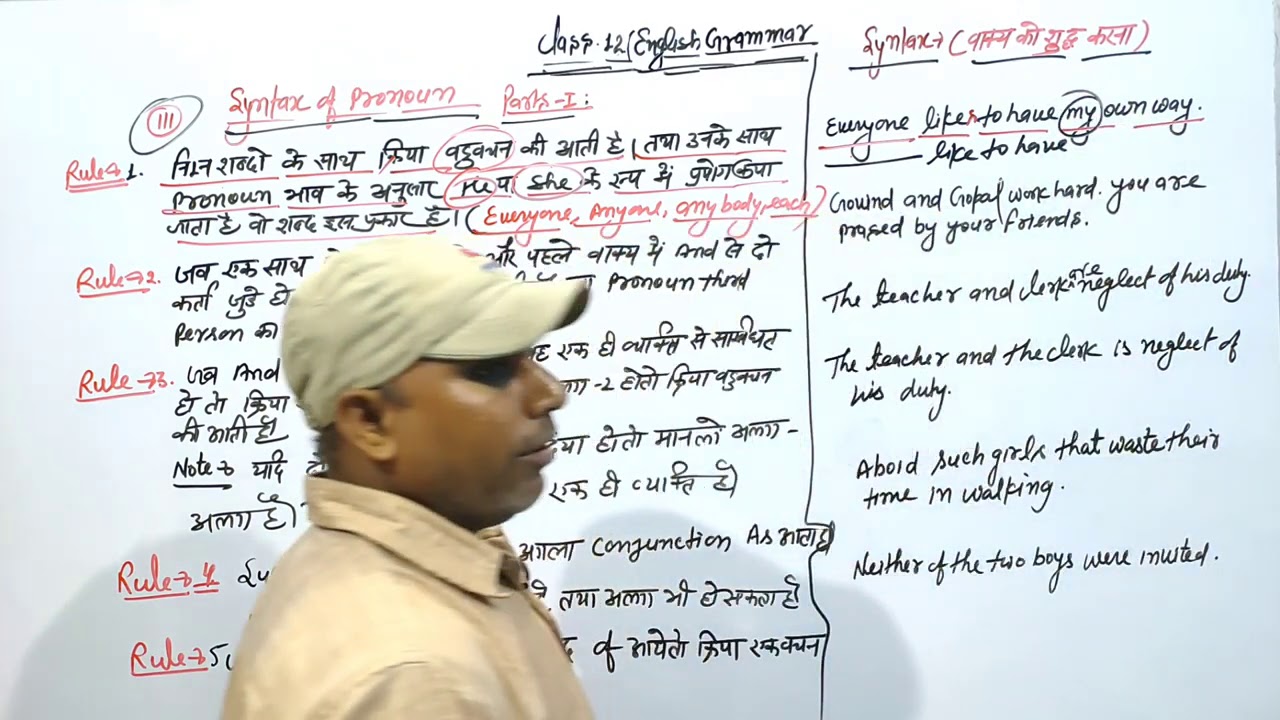 Class.12/English Grammar
III Syntax of Pronoun Parts-I:
Rule 1. निम्न शब्दो के साथ क्रिया बहुवचन की आती है। तथा उनके साथ
Pronoun भाव के अनुसार He या She के रूप में प्रयोग किया
जाता है वो शब्द इस प्रकार है। (Everyone, Anyone, any body, each)
Rule→2. जब एक साथ और पहले वाक्य में And से दो
कर्ता जुडे हो Pronoun third
Person का
Rule→3. जब And एक ही व्यक्ति से सम्बंधित
हो तो क्रिया -2 होतो क्रिया बहुवचन
की आती है।
Note→ यदि होतो मानलो अलग-
अलग है। एक ही व्यक्ति है।
Rule→4 अगला Conjunction As आता है।
तथा अलग भी हो सकता है
Rule→5 of आयेतो क्रिया एकवचन
Syntax→(वाक्य को शुद्ध करना)
Everyone likes to have my own way.
like to have
Govind and Gopal work hard. you are
prased by your friends.
The teacher and clerk are neglect of his duty.
The teacher and the clerk is neglect of
his duty.
Aboid such girls that waste their
time in walking.
Neither of the two boys were invited.